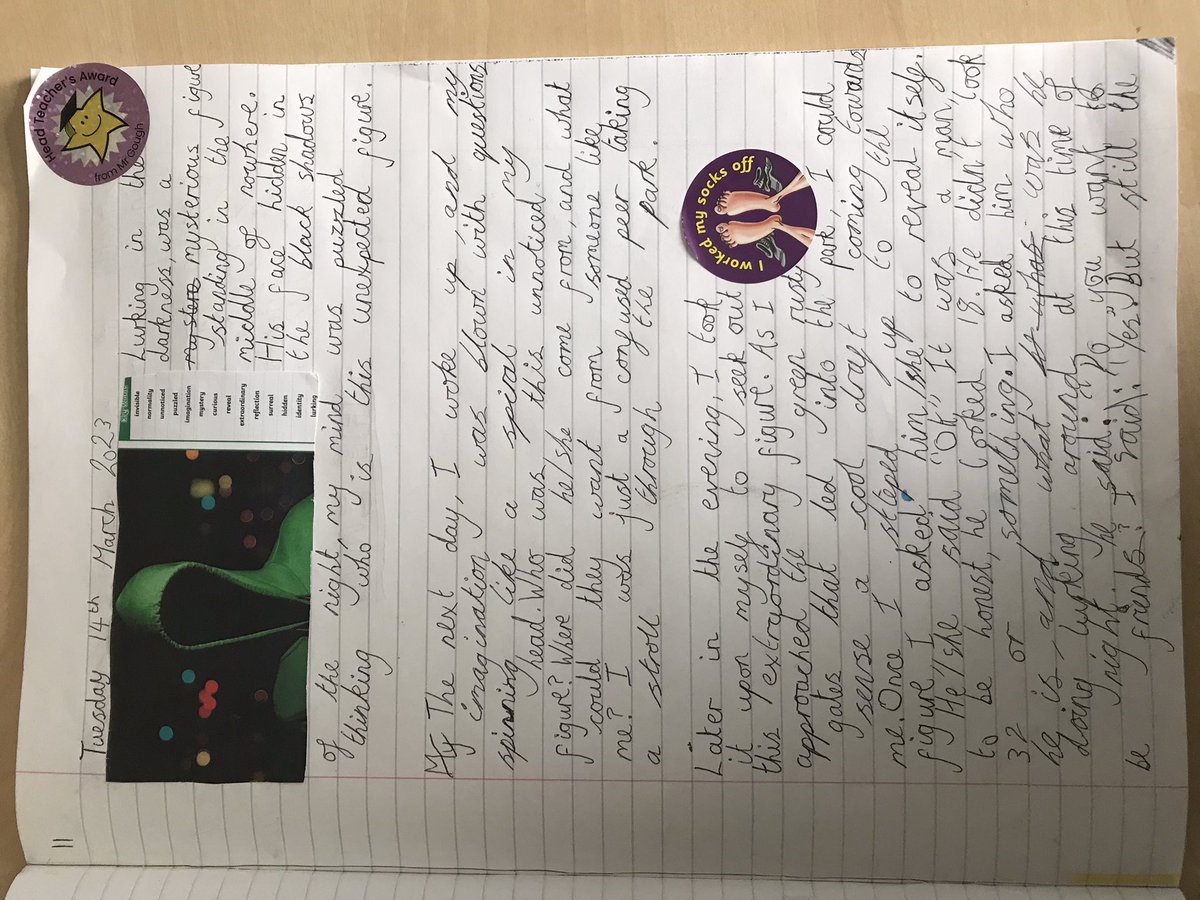 11
Tuesday 14th March 2023
Head Teacher's Award
from Mr Gough
Key Words:
invisible
normality
unnoticed
puzzled
imagination
mystery
curious
reveal
extraordinary
reflection
surreal
hidden
identity
lurking
Lurking in the
darkness, was a
mysterious figure
standing in the
middle of nowhere.
His face hidden in
the black shadows
of the night, my mind was puzzled
thinking who is this unexpected figure.
My The next day, I woke up, and my
imagination was blown with questions
spinning like a spiral in my
head. Who was this unnoticed
figure? Where did he/she come from, and what
could they want from someone like
me? I was just a confused peer taking
a stroll through the park.
I worked my socks off
Later in the evening I took
it upon myself to seek out
this extraordinary figure. As I
approached the green rusty
gates that led into the park, I could
sense a cool draft coming towards
me. Once I steped up to the
figure I asked him/she to reveal itself.
He/she said "OK" It was a man,
to be honest, he looked 18. He didn't look
32 or something. I asked him who
he is and what was he
doing lurking around at this time of
night. he said: "Do you want to
be friends? I said: "Yes". But still the